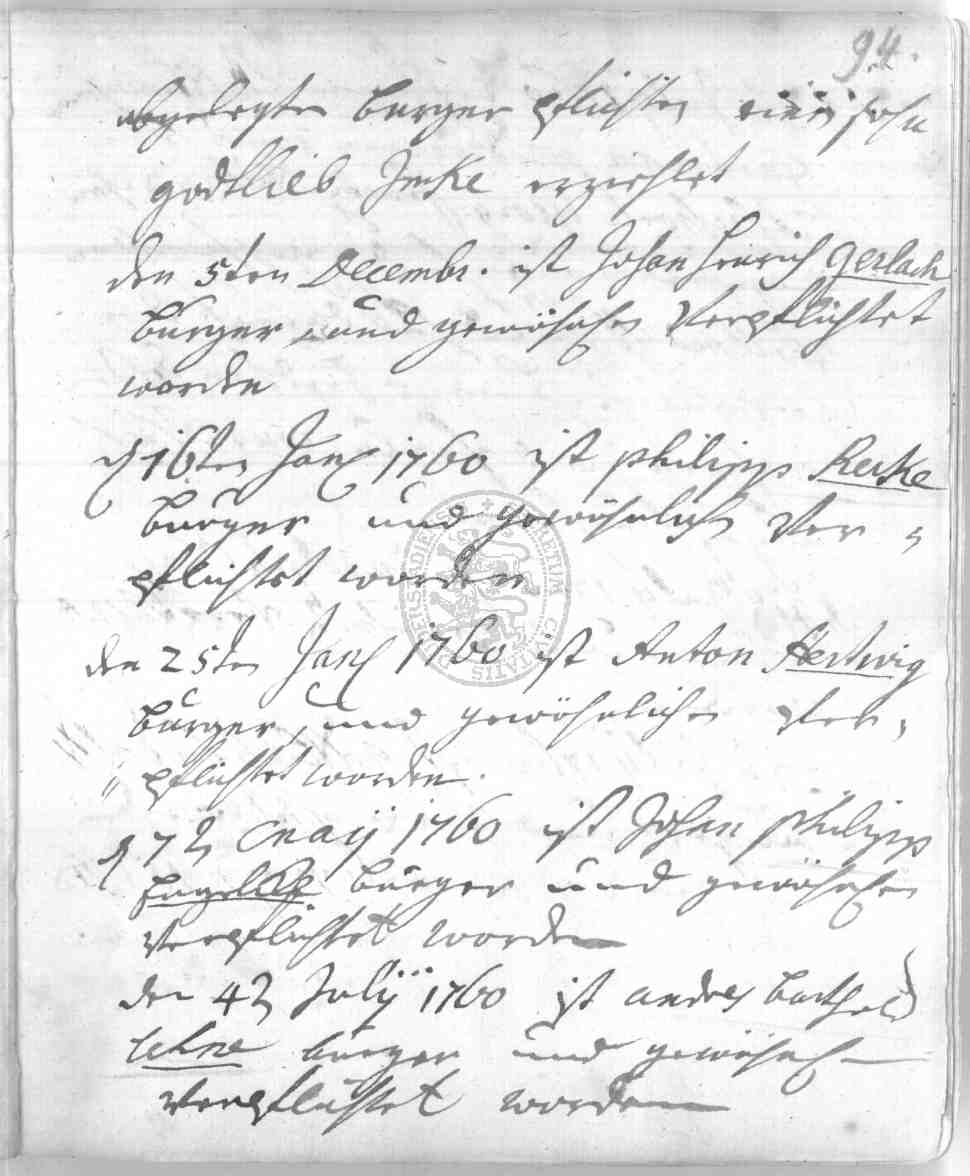 94.
abgelegten burger pflichten einen sohn
godtlieb Jmke erziehlet
den 5ten Decembr. ist Johan Henrich Gerlach
burger und gewöhnlich Verpflichtet
worden
d 16ten Jan 1760 ist philipp Reike
burger und gewöhnlich Ver=
pflichtet worden
den 25ten Jan 1760 ist Anton Hertwig
burger, und gewöhnlichen Ver,
" pflichtet worden.
d 7t Maÿ 1760 ist Johan philipp
burger und gewöhnlichen
Verpflichtet worden
den 4t Julÿ 1760 ist andres barthold
lehne burger und gewöhnlich
Verpflichtet worden